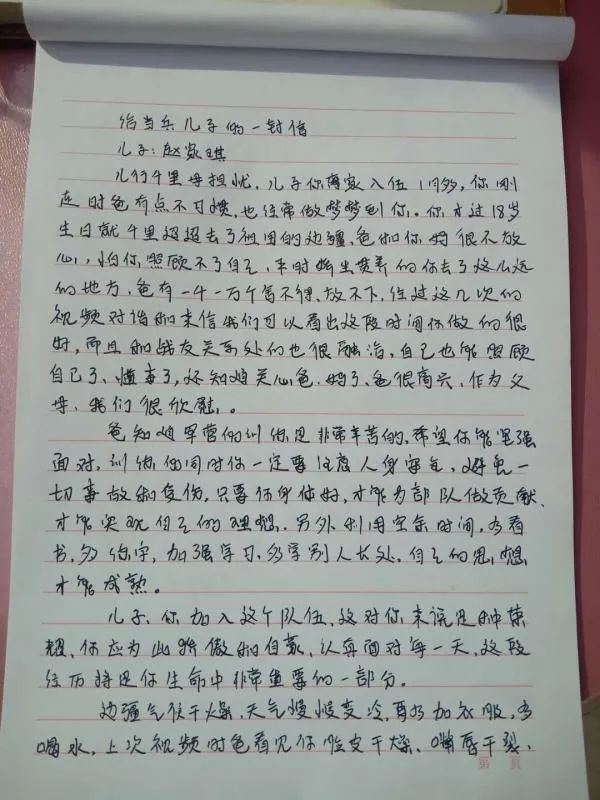 给当兵儿子的一封信
儿子:赵家琪
儿行千里母担忧,儿子你离家入伍1月多,你刚
走时爸有点不习惯,也经常做梦梦到你。你才过18岁
生日就千里迢迢去了祖国的边疆,爸和你妈很不放
心,怕你照顾不了自己,平时娇生惯养的你去了这么远
的地方,爸有一千一万个舍不得、放不下,经过这几次的
视频对话和来信我们可以看出这段时间你做的很
好,而且和战友关系处的也很融洽,自己也能照顾
自己了、懂事了,还知道关心爸.妈了、爸很高兴,作为父
母、我们很欣慰,。
爸知道军营的训练是非常辛苦的,希望你能坚强
面对,训练的同时你一定要注意人身安全,避免一
切事故和受伤,只要你身体好,才能为部队做贡献、
才能实现自己的理想.另外利用空余时间,多看
书,多练字,加强学习.多学别人长处.自己的思想
才能成熟。
儿子、你加入这个队伍,这对你来说是种荣
耀、你应为此骄傲和自豪,认真面对每一天,这段
经历将是你生命中非常重要的一部分。
边疆气候干燥,天气慢慢变冷,要多加衣服,多
喝水,上次视频时爸看见你脸皮干燥、嘴唇干裂,
第 頁